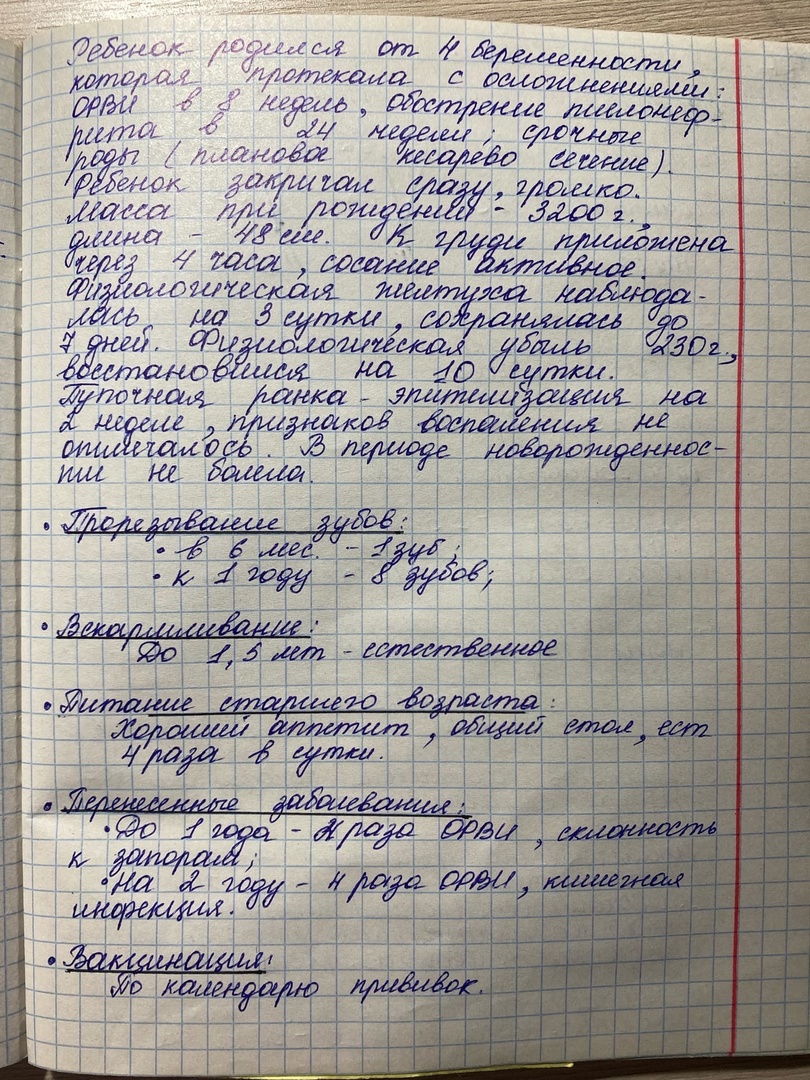 Ребенок родился от 4 беременности,
которая протекала с осложнениями:
ОРВИ в 8 недель, обострение пиелонеф-
рита в 24 недели; срочные
роды (плановое кесарево сечение).
Ребенок закричал сразу, громко.
Масса при рождении - 3200 г.,
длина - 48 см. К груди приложена
через 4 часа, сосание активное.
Физиологическая желтуха наблюда-
лась на 3 сутки, сохранялась до
7 дней. Физиологическая убыль 230 г.,
восстановился на 10 сутки.
Пупочная ранка - эпителизация на
2 неделе, признаков воспаления не
отмечалось. В периоде новорожденнос-
ти не болела.
• Прорезывание зубов:
• в 6 мес. - 1 зуб;
• к 1 году - 8 зубов;
• Вскармливание:
До 1,5 лет - естественное
• Питание старшего возраста:
Хороший аппетит, общий стол, ест
4 раза в сутки.
• Перенесенные заболевания:
• До 1 года - раза ОРВИ, склонность
к запорам;
• На 2 году - 4 раза ОРВИ, кишечная
инфекция.
• Вакцинация:
По календарю прививок.